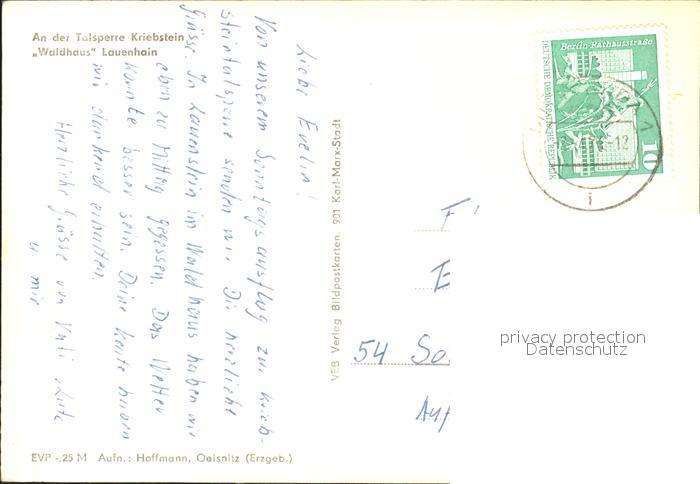 An der Talsperre Kriebstein
„Waldhaus" Lauenhain
Liebe Evelin!
Von unserem Sonntagsausflug zur Krieb-
steintalsperre senden wir Dir herzliche
Grüsse. In Lauenstein im Waldhaus haben wir
eben zu Mittag gegessen. Das Wetter
könnte besser sein. Deine Karte haben
wir dankend erhalten.
Herzliche Grüsse von
u mir
EVP -.25 M Aufn.: Hoffmann, Oelsnitz (Erzgeb.)
VEB Verlag Bildpostkarten. 901 Karl-Marx-Stadt
Berlin·Rathausstraße
DEUTSCHE DEMOKRATISCHE REPUBLIK
10
F
E
54 So
privacy protection
Datenschutz